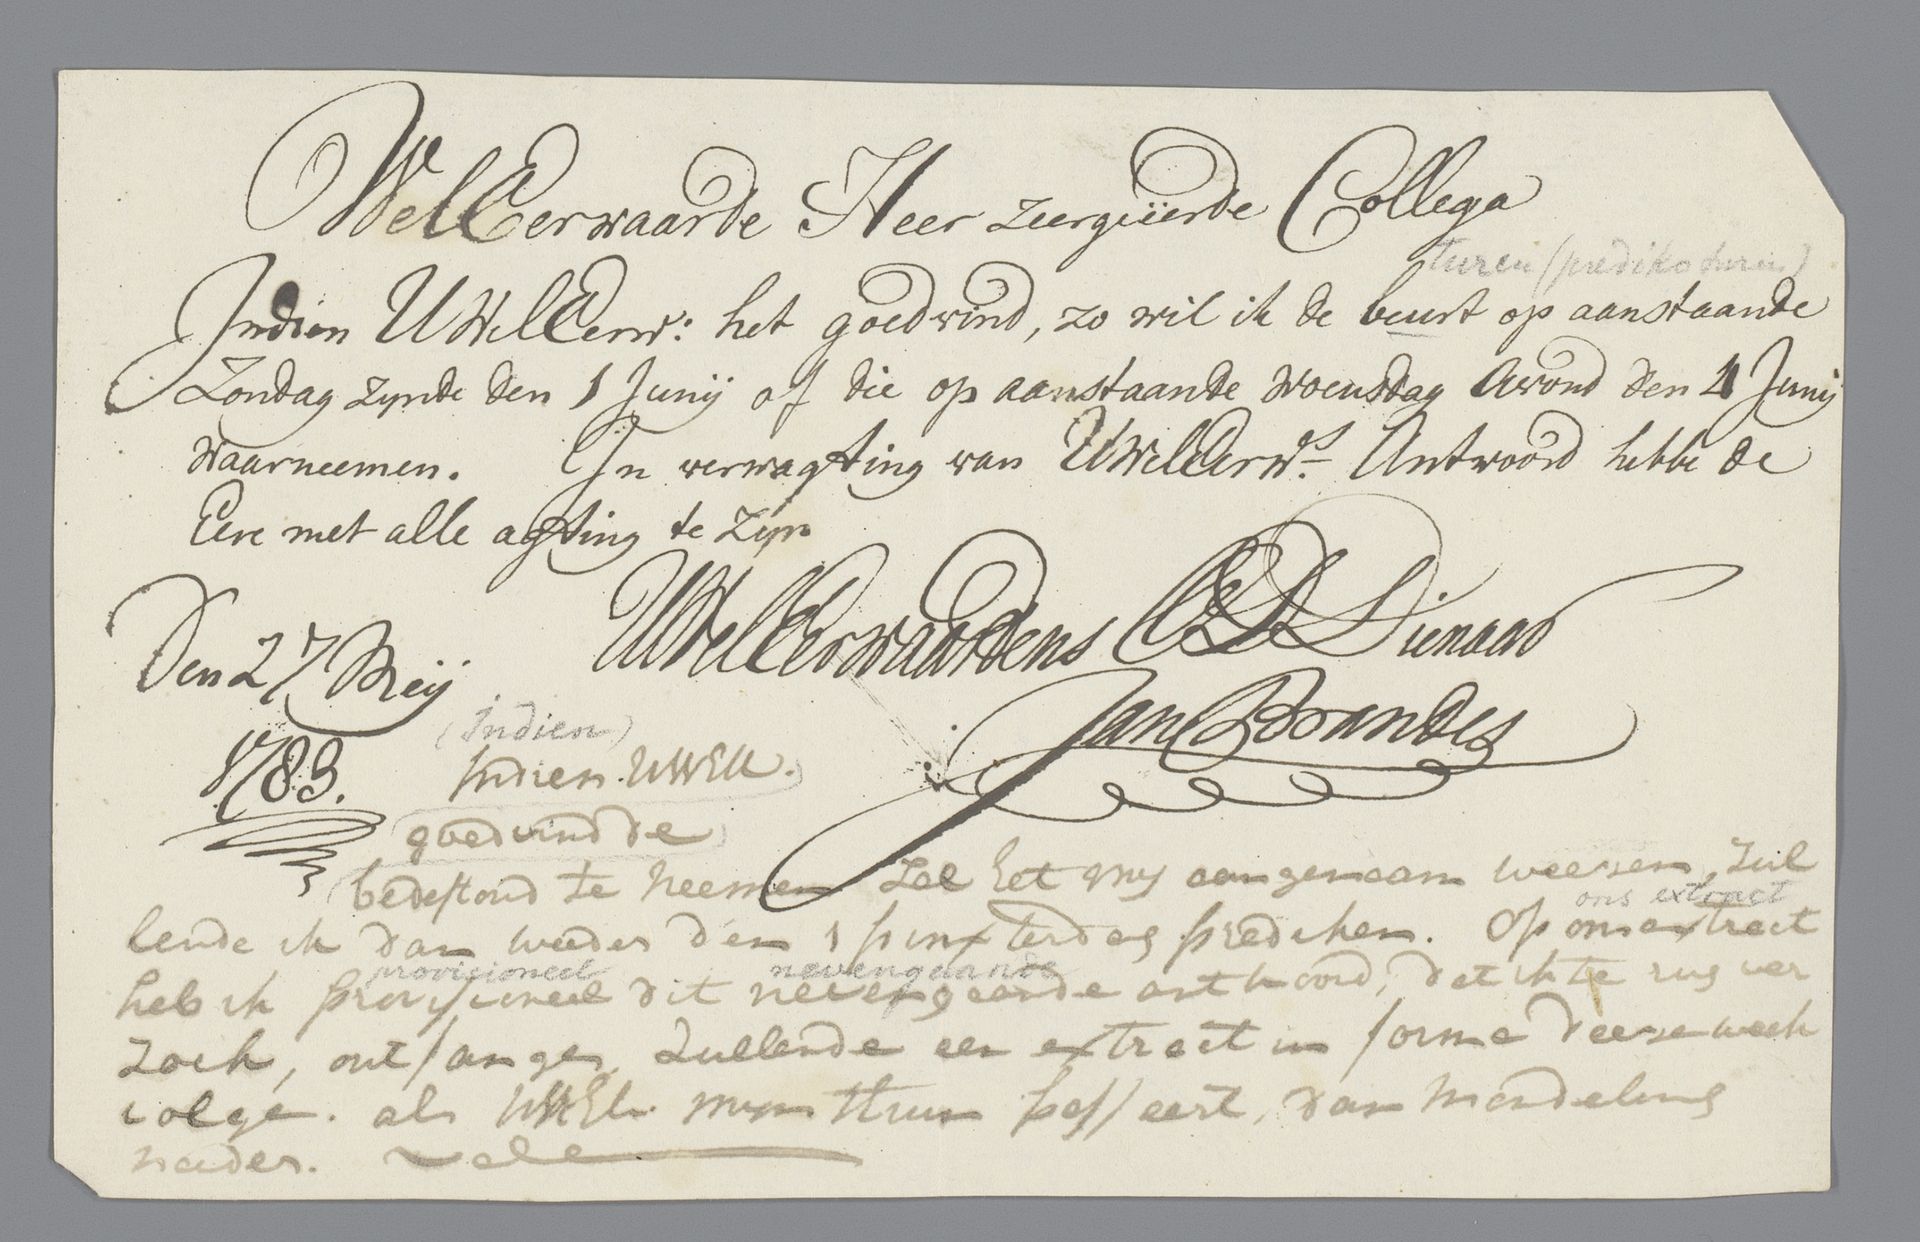 WelEerwaarde Heer zeergeëerde Collega
turen (prediksturen)
Indien UWelEerw: het goedvind, zo wil ik de beurt op aanstaande
Zondag zynde den 1 Junij of die op aanstaande Woensdag Avond den 4 Junij
waarneemen. In verwagting van UWelEerws. Antwoord hebbe de
Eere met alle agting te zyn
UWelEerwaardens Dienaar
Den 27 Meij
Jan Brandes
1783.
(Indien)
Indien UWEL.
goedvind de
bedestond te neemen zal het my aangenaam weesen, zul
ons extract
lende ik dan weeder den 1 pinxterdag prediken. Op ons extract
provisioneel nevengaande
heb ik provisioneel dit nevengaande antwoord, dat ik te rug ver
zoek, ontfangen, zullende een extract in forme deese week
volge. als UWEL. myn thuin passeert, dan mondeling
nader. vale